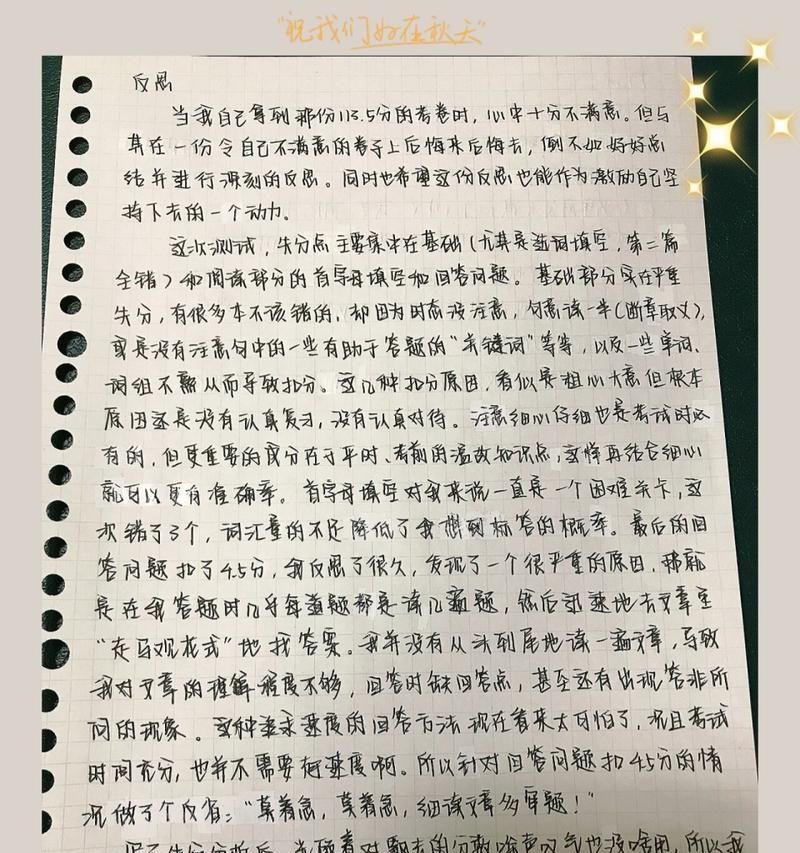 "祝我们好在秋天"
反思
当我自己拿到那份113.5分的考卷时，心中十分不满意。但与
其在一份令自己不满意的卷子上后悔来后悔去，倒不如好好总
结并进行深刻的反思。同时也希望这份反思也能作为激励自己坚
持下去的一个动力。
这次测试，失分点主要集中在基础（尤其是选词填空，第二篇
全错）和阅读部分的首字母填空和回答问题。基础部分实在严重
失分，有很多本不该错的，却因为时态没注意，句意读一半（断章取义），
或是没有注意句中的一些有助于答题的"关键词"等等，以及一些单词、
词组不熟从而导致扣分。这几种扣分原因，看似是粗心大意但根本
原因还是没有认真复习，没有认真对待。注意细心仔细也是考试时必
有的，但更重要的成分在于平时、考前的温故知识点，这样再结合细心
就可以更有准确率。首字母填空对我来说一直是一个困难关卡，这
次错了3个，词汇量的不足降低了我想到标答的概率。最后的回
答问题扣了4.5分，我反思了很久，发现了一个很严重的原因，那就
是在我答题时几乎每道题都是读几遍题，然后迅速地去文章里
"走马观花式"地找答案。我并没有从头到尾地读一遍文章，导致
我对文章的理解程度不够，回答时缺回答点，甚至还有出现答非所
问的现象。这种追求速度的回答方法现在看来太可怕了，况且考试
时间充分，也并不需要何速度啊。所以针对回答问题扣4.5分的情
况做了个反省："莫着急，莫着急，细读文章多审题！"